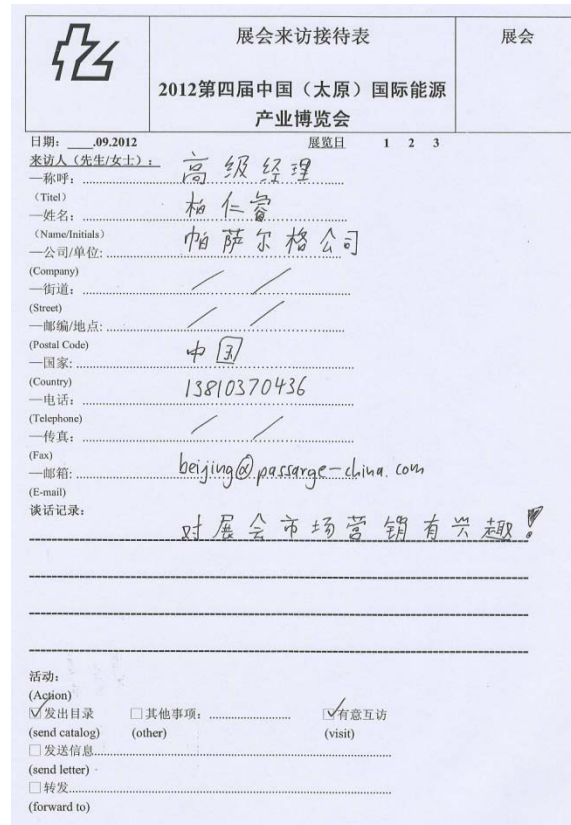 展会来访接待表
展会
2012第四届中国（太原）国际能源
产业博览会
日期：____.09.2012 展览日 1 2 3
来访人（先生/女士）：
—称呼：高级经理
（Titel）
—姓名：柏仁睿
（Name/Initials）
—公司/单位：帕萨尔格公司
(Company)
—街道： / /
(Street)
—邮编/地点: / /
(Postal Code)
—国家: 中国
(Country)
—电话：13810370436
(Telephone)
—传真： / /
(Fax)
—邮箱: beijing@passarge-china.com
(E-mail)
谈话记录：
对展会市场营销有兴趣！
活动：
(Action)
☑发出目录 □其他事项：........................ ☑有意互访
(send catalog) (other) (visit)
□发送信息
(send letter)
□转发
(forward to)